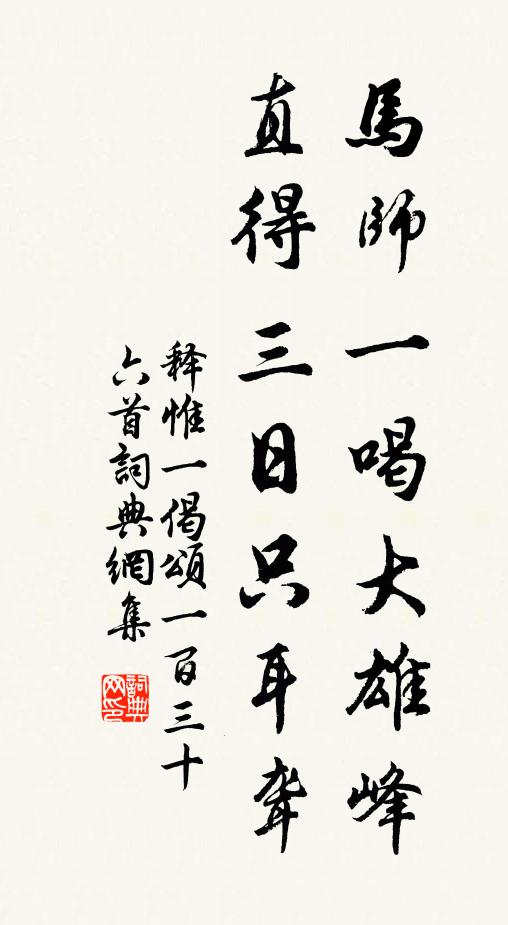 馬師一喝大雄峰
直得三日只耳聾
释惟一偈頌一百三十
六首詞典網集
詞典网印